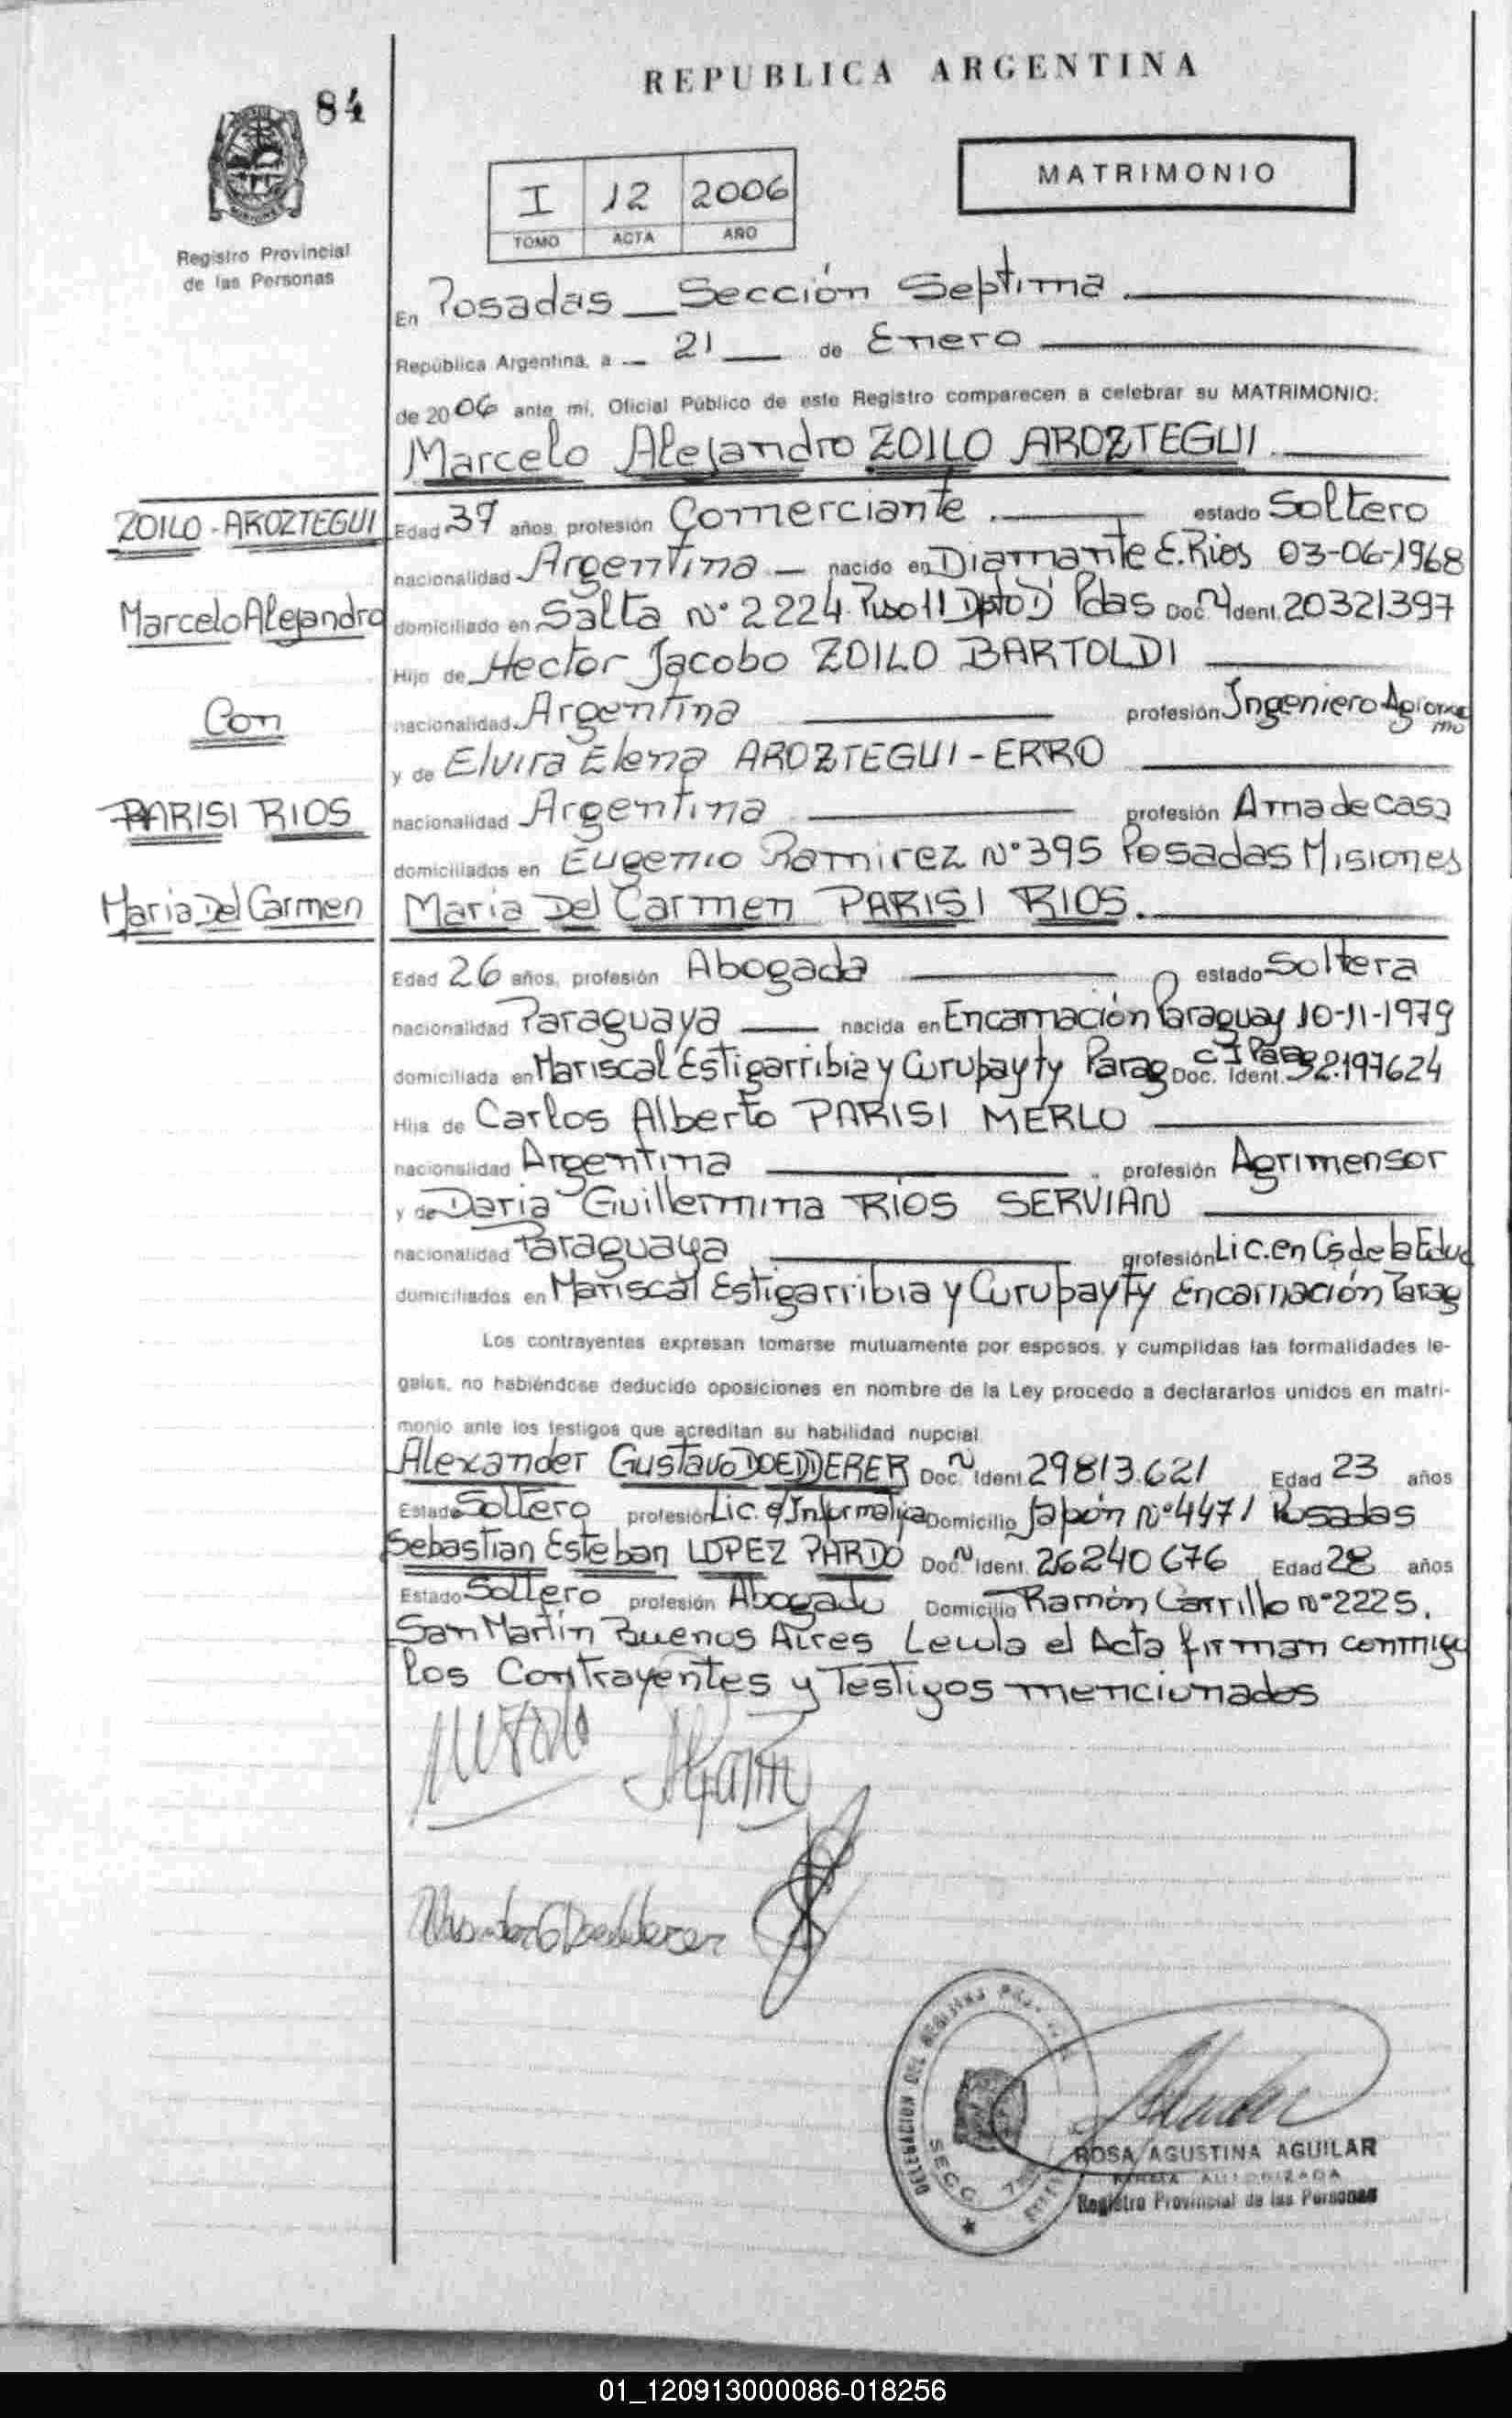 REPUBLICA ARGENTINA
84
MATRIMONIO
I 12 2006
TOMO ACTA AÑO
Registro Provincial
de las Personas
En Posadas Sección Septima
República Argentina, a 21 de Enero
de 2006 ante mi, Oficial Público de este Registro comparecen a celebrar su MATRIMONIO:
Marcelo Alejandro ZOILO AROZTEGUI
ZOILO - AROZTEGUI
Edad 37 años, profesión Comerciante estado Soltero
nacionalidad Argentina nacido en Diamante E.Rios 03-06-1968
Marcelo Alejandro
domiciliado en Salta Nº 2224 Piso 11 Dpto D Pdas Doc. N Ident. 20321397
Hijo de Hector Jacobo ZOILO BARTOLDI
Con
nacionalidad Argentina profesión Ingeniero Agrono
mo
y de Elvira Elena AROZTEGUI - ERRO
PARISI RIOS
nacionalidad Argentina profesión Ama de casa
domiciliados en Eugenio Ramirez Nº 395 Posadas Misiones
Maria Del Carmen
Maria Del Carmen PARISI RIOS.
Edad 26 años, profesión Abogada estado Soltera
nacionalidad Paraguaya nacida en Encarnación Paraguay 10-11-1979
domiciliada en Mariscal Estigarribia y Curupayty Parag Doc. Ident.
Hija de Carlos Alberto PARISI MERLO
nacionalidad Argentina profesión Agrimensor
y de Daria Guillermina RIOS SERVIAN
nacionalidad Paraguaya profesión Lic. en Cs de la Educ
domiciliados en Mariscal Estigarribia y Curupayty Encarnación Parag
Los contrayentes expresan tomarse mutuamente por esposos, y cumplidas las formalidades le-
gales, no habiéndose deducido oposiciones en nombre de la Ley procedo a declararlos unidos en matri-
monio ante los testigos que acreditan su habilidad nupcial.
Alexander Gustavo DOEDDERER Doc. N Ident. 29813.621 Edad 23 años
Estado Soltero profesión Lic. e/Informatica Domicilio Japón Nº 4471 Posadas
Sebastian Esteban LOPEZ PARDO Doc. N Ident. 26240676 Edad 28 años
Estado Soltero profesión Abogado Domicilio Ramón Carrillo Nº 2225.
San Martin Buenos Aires Leida el Acta firman conmigo
los Contrayentes y Testigos mencionados
DELEGACION DEL REGISTRO
SECC. 7ma
ROSA AGUSTINA AGUILAR
FIRMA AUTORIZADA
Registro Provincial de las Personas
01_120913000086-018256